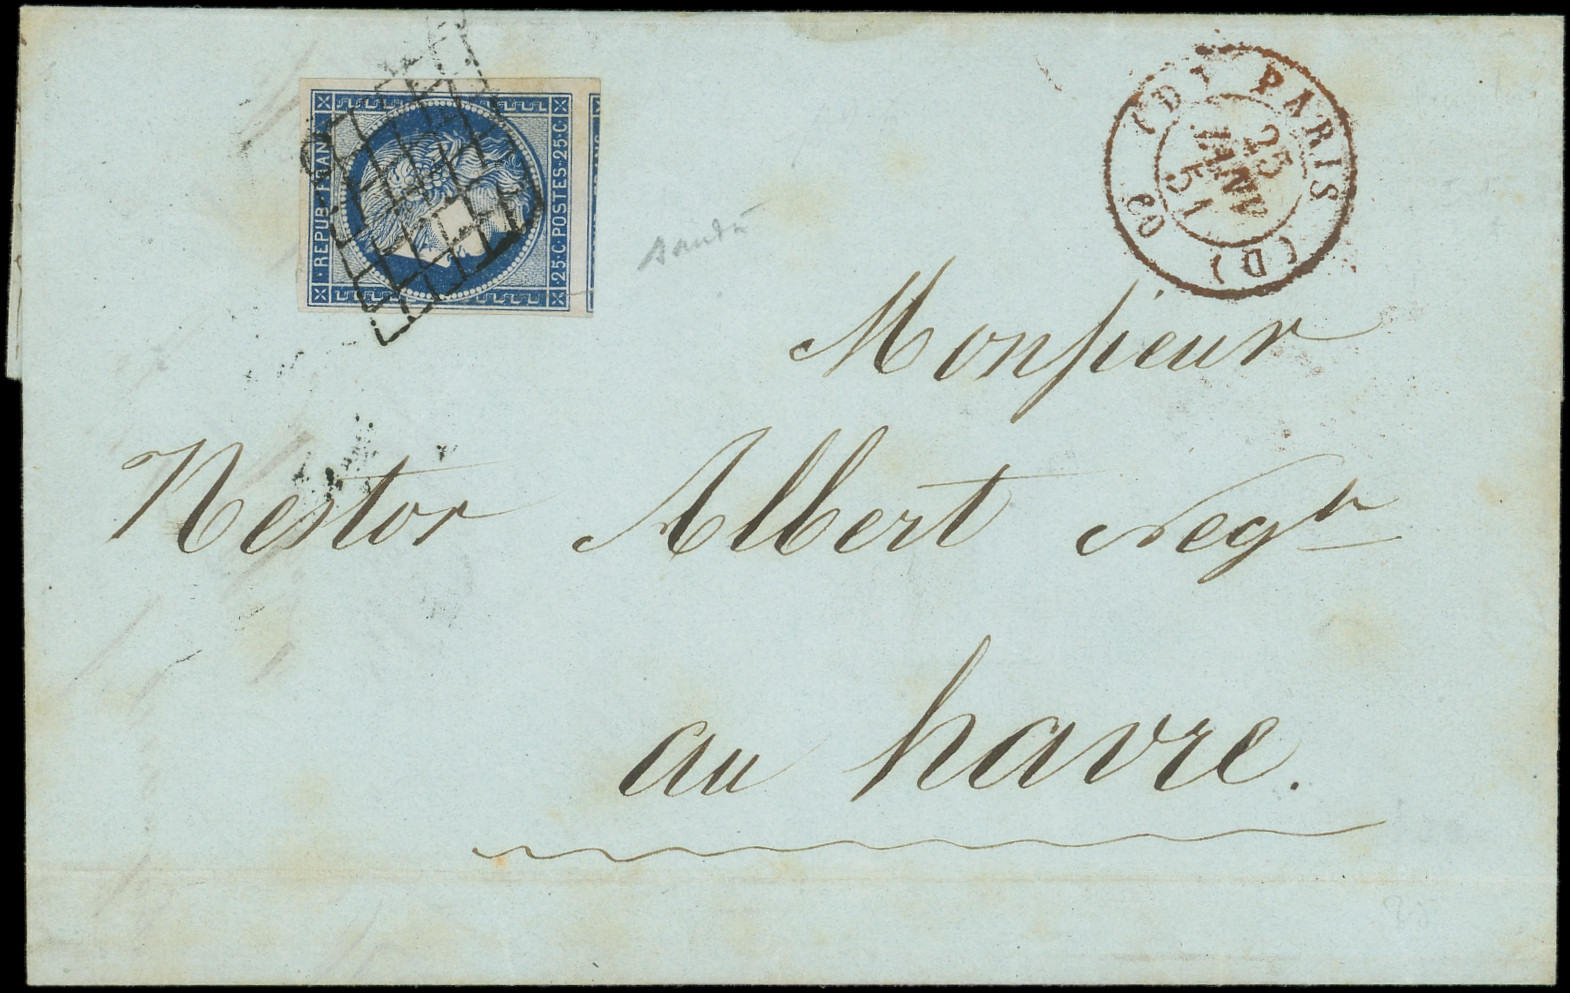 REPUB·FRANC
25·C·POSTES·25·C
PARIS (D)
25
JANV
51
Monsieur
Nestor Albert Negt
au havre.